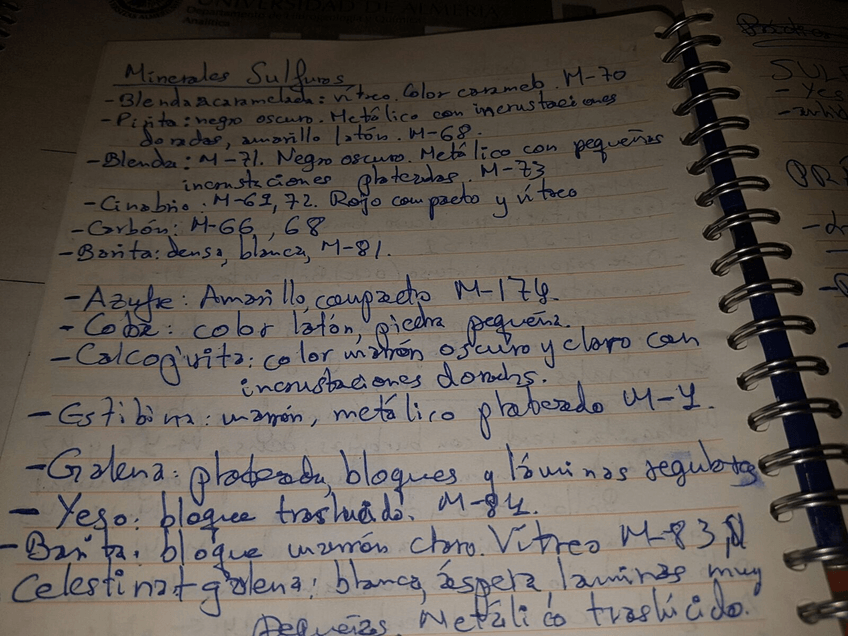 UNIVERSIDAD DE ALMERÍA
Minerales Sulfuros
- Blenda acaramelada: vítreo. Color caramelo. M-70
- Pirita: negro oscuro. Metálico con incrustaciones
doradas, amarillo latón. M-68.
- Blenda: M-71. Negro oscuro. Metálico con pequeñas
incrustaciones plateadas. M-73
- Cinabrio: M-69, 72. Rojo compacto y vítreo
- Carbón: M-66, 68
- Barita: densa, blanca, M-81.
- Azufre: Amarillo, compacto M-174.
- Cobre: color latón, piedra pequeña.
- Calcopirita: color marrón oscuro y claro con
incrustaciones doradas.
- Estibina: marrón, metálico plateado M-4.
- Galena: plateada, bloques y láminas regulares
- Yeso: bloque traslucido. M-84.
- Barita: bloque marrón claro. Vítreo M-83,
Celestina + galena: blanca, áspera laminas muy
pequeñas. Metálico traslúcido.
SUL
- Yes
- anhid